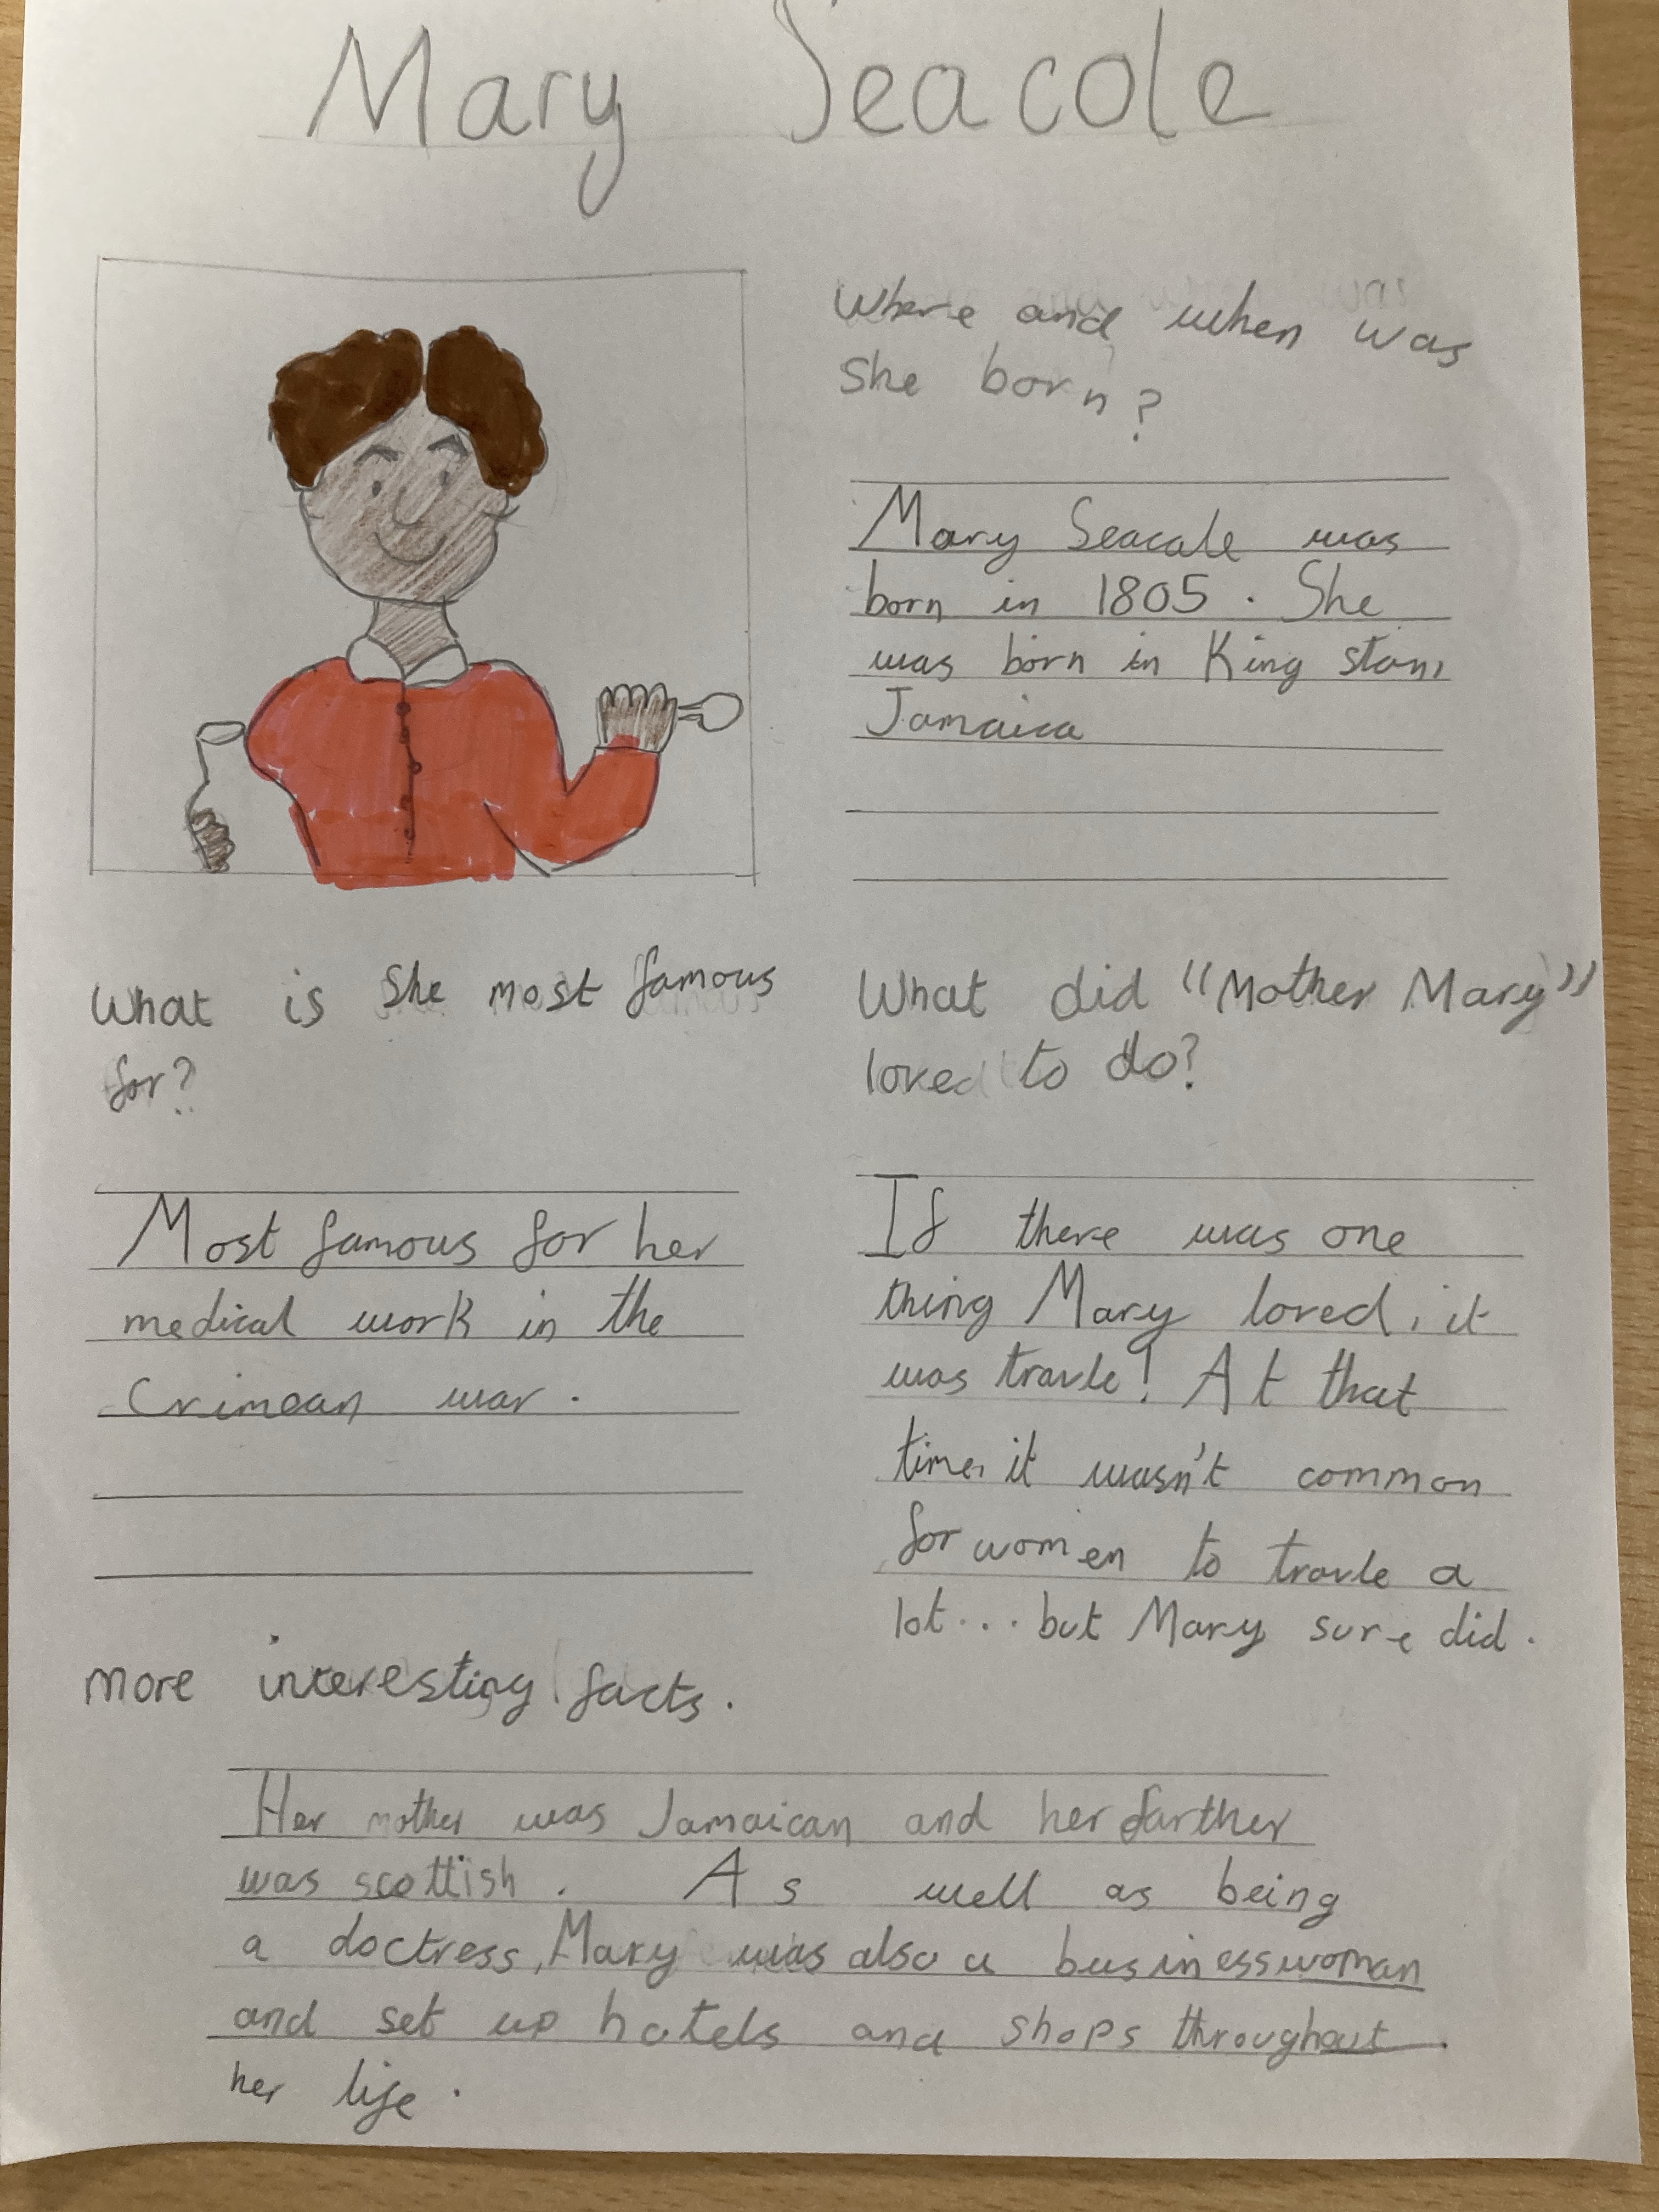 Mary Seacole
Where and when was
she born?
Mary Seacale was
born in 1805. She
was born in King ston,
Jamaica
What is She most famous
for?
Most famous for her
medical work in the
Crimean war.
What did "Mother Mary"
loved to do?
If there was one
thing Mary loved, it
was travle! At that
time, it wasn't common
for women to travle a
lot... but Mary sure did.
more interesting facts.
Her mother was Jamaican and her farther
was scottish. As well as being
a doctress, Mary was also a businesswoman
and set up hotels and shops throughout
her life.